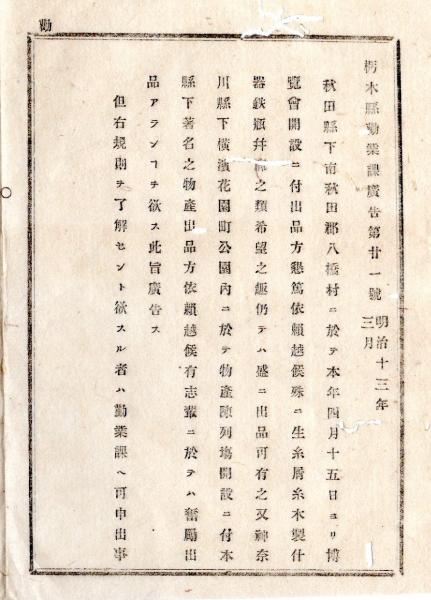 勸
栃木縣勸業課廣告第廿一號 明治十三年三月
秋田縣下南秋田郡八橋村ニ於テ本年四月十五日ヨリ博
覽會開設ニ付出品方懇篤依賴越候殊ニ生糸屑糸木製什
器鉄瓶幷之類希望之趣仍テハ盛ニ出品可有之又神奈
川縣下橫濱花園町公園內ニ於テ物產陳列塲開設ニ付本
縣下著名之物產出品方依賴越候有志輩ニ於テハ奮勵出
品アランヿヲ欲ス此旨廣告ス
但右規則ヲ了解セント欲スル者ハ勸業課ヘ可申出事